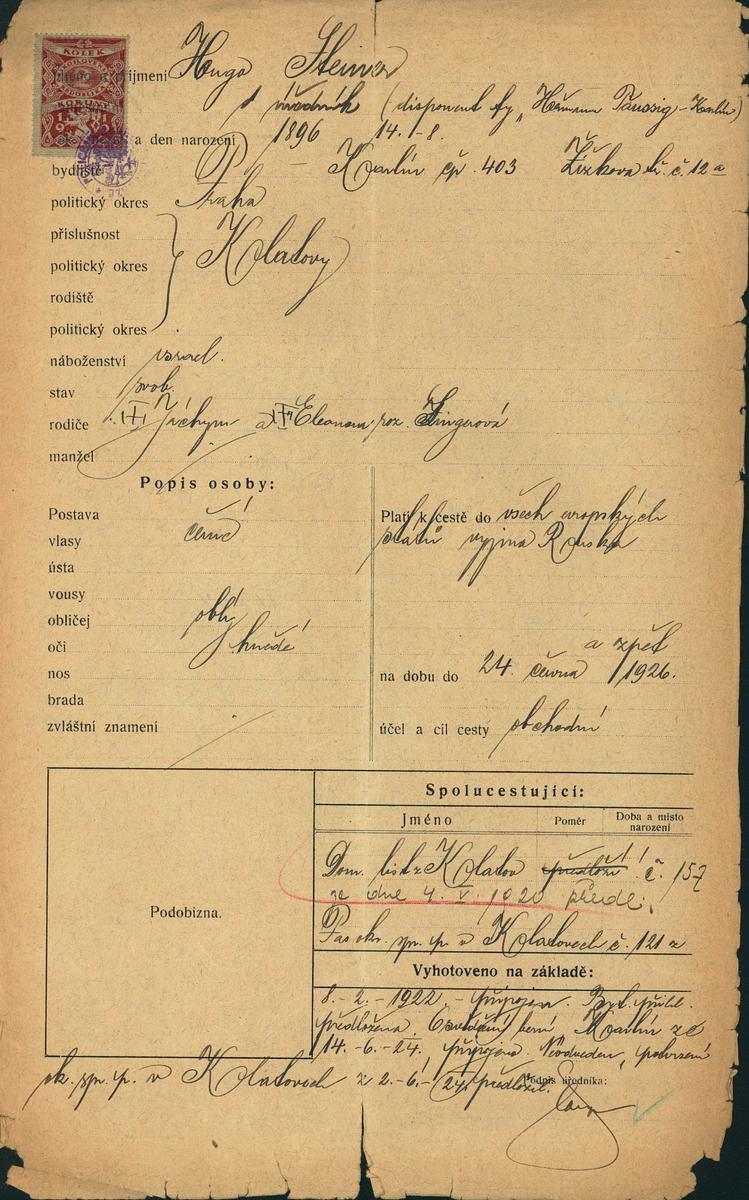 KOLEK
Jméno a příjmení Hugo Steiner
úředník (disponent fy „Heřmann Taussig - Karlín)
a den narození 1896 14.-8.
bydliště Karlín čp. 403 Žižkova tř. č. 12a
politický okres Praha
příslušnost
politický okres Klatovy
rodiště
politický okres
náboženství israel.
stav svob.
rodiče Jáchym a Eleonora roz. Singerová
manžel
Popis osoby:
Postava
vlasy černé
ústa
vousy
obličej oblý
oči hnědé
nos
brada
zvláštní znamení
Platí k cestě do všech evropských
států vyjma Ruska
a zpět
na dobu do 24. června 1926.
účel a cíl cesty obchodní
Podobizna.
Spolucestující:
Jméno Poměr Doba a místo narození
Dom. list z Klatov předloží č. 157
ze dne 4. V. 1920 předl.
Pas okr. spr. p. v Klatovech č. 121 z
Vyhotoveno na základě:
8.-2.-1922 - připojen.
předložena. Osvědčení berní Karlín ze
14.-6.-24. připojeno. Neodveden, potvrzení
ok. spr. p. v Klatovech z 2.-6.-24 předložil.
Podpis úředníka: